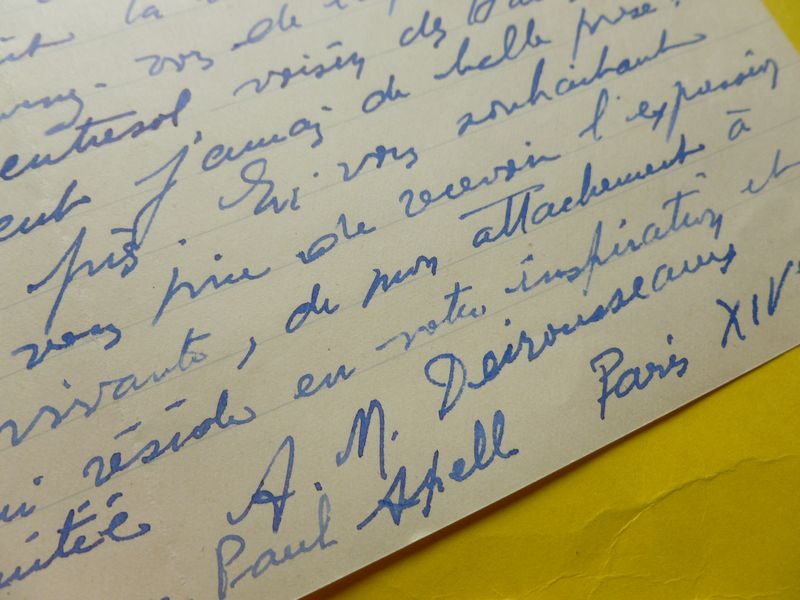 la
vous de
entresol voisin des
jamais de belle prise.
près. En vous souhaitant
vous prie de recevoir l'expression
vivante, de mon attachement à
réside en votre inspiration et
A. M. Desrousseaux
Paul Apell Paris XIVe